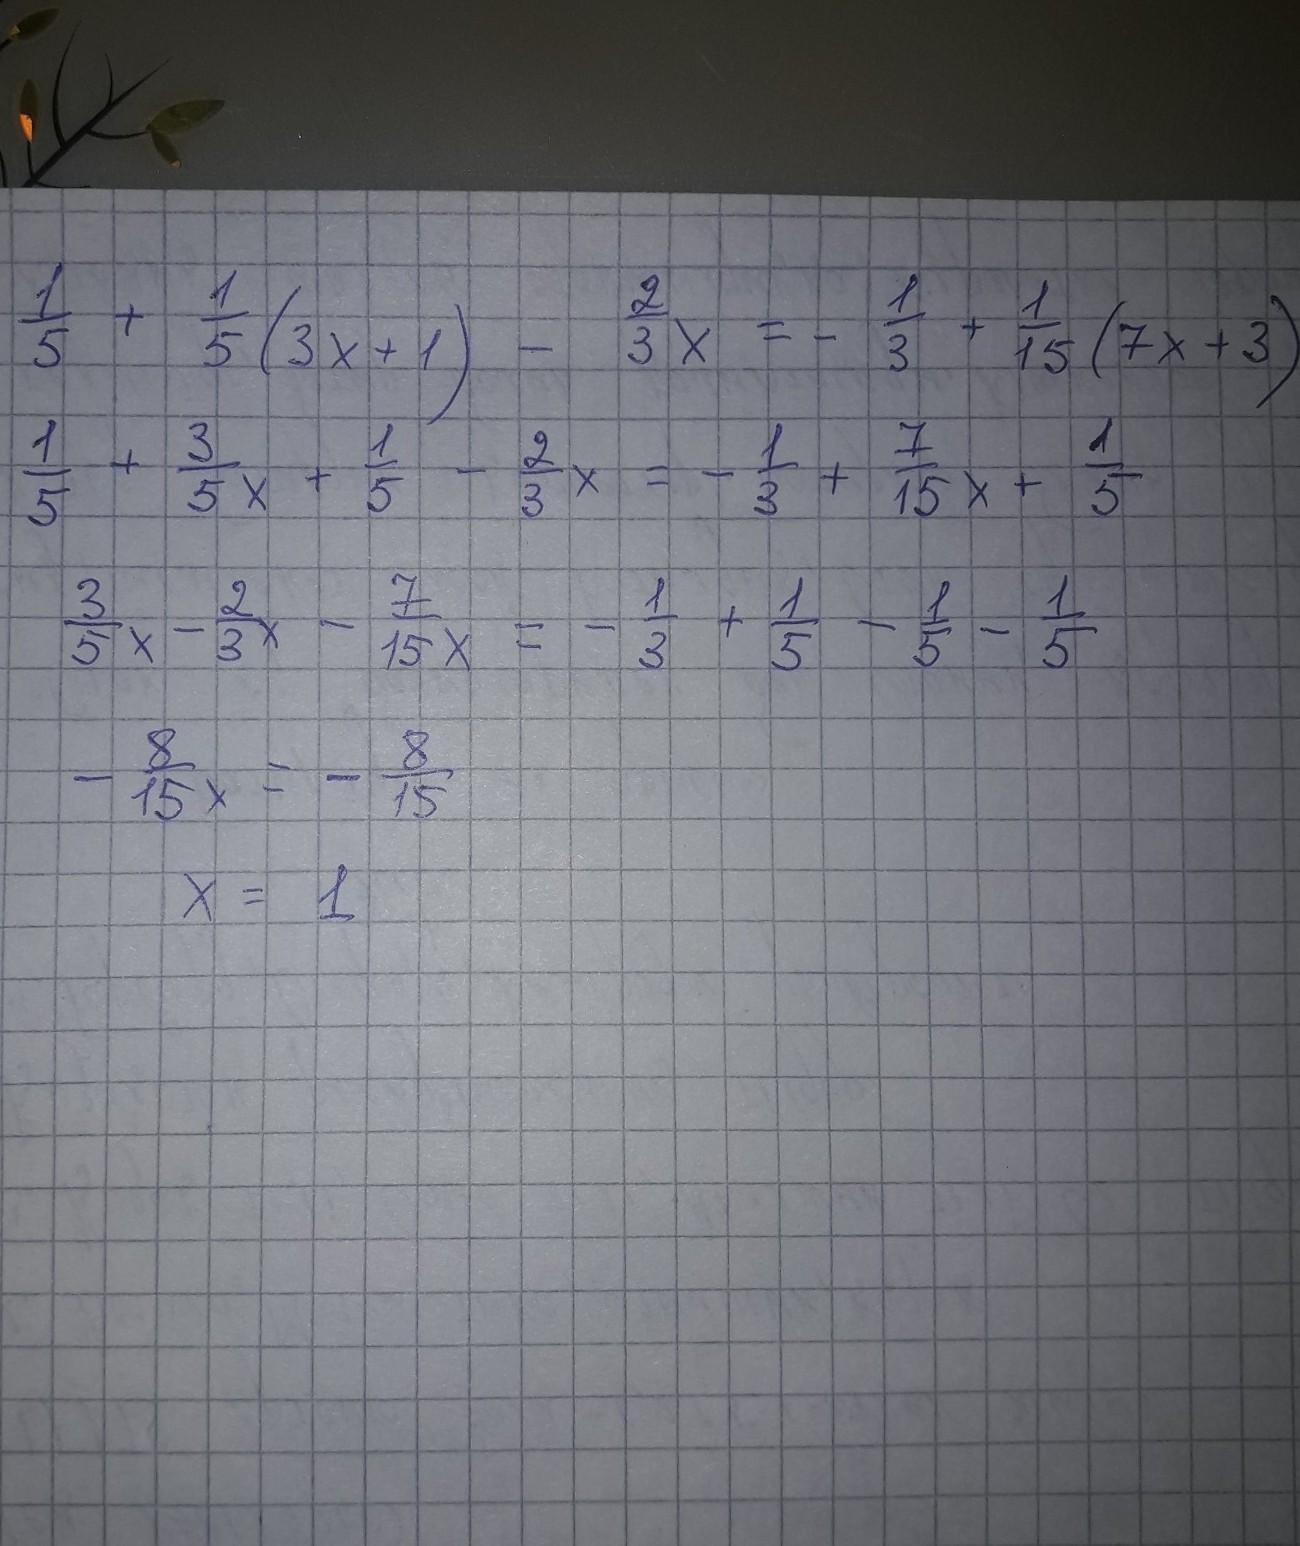 1/5 + 1/5 (3x + 1) - 2/3 x = - 1/3 + 1/15 (7x + 3)
1/5 + 3/5 x + 1/5 - 2/3 x = - 1/3 + 7/15 x + 1/5
3/5 x - 2/3 x - 7/15 x = - 1/3 + 1/5 - 1/5 - 1/5
- 8/15 x = - 8/15
x = 1